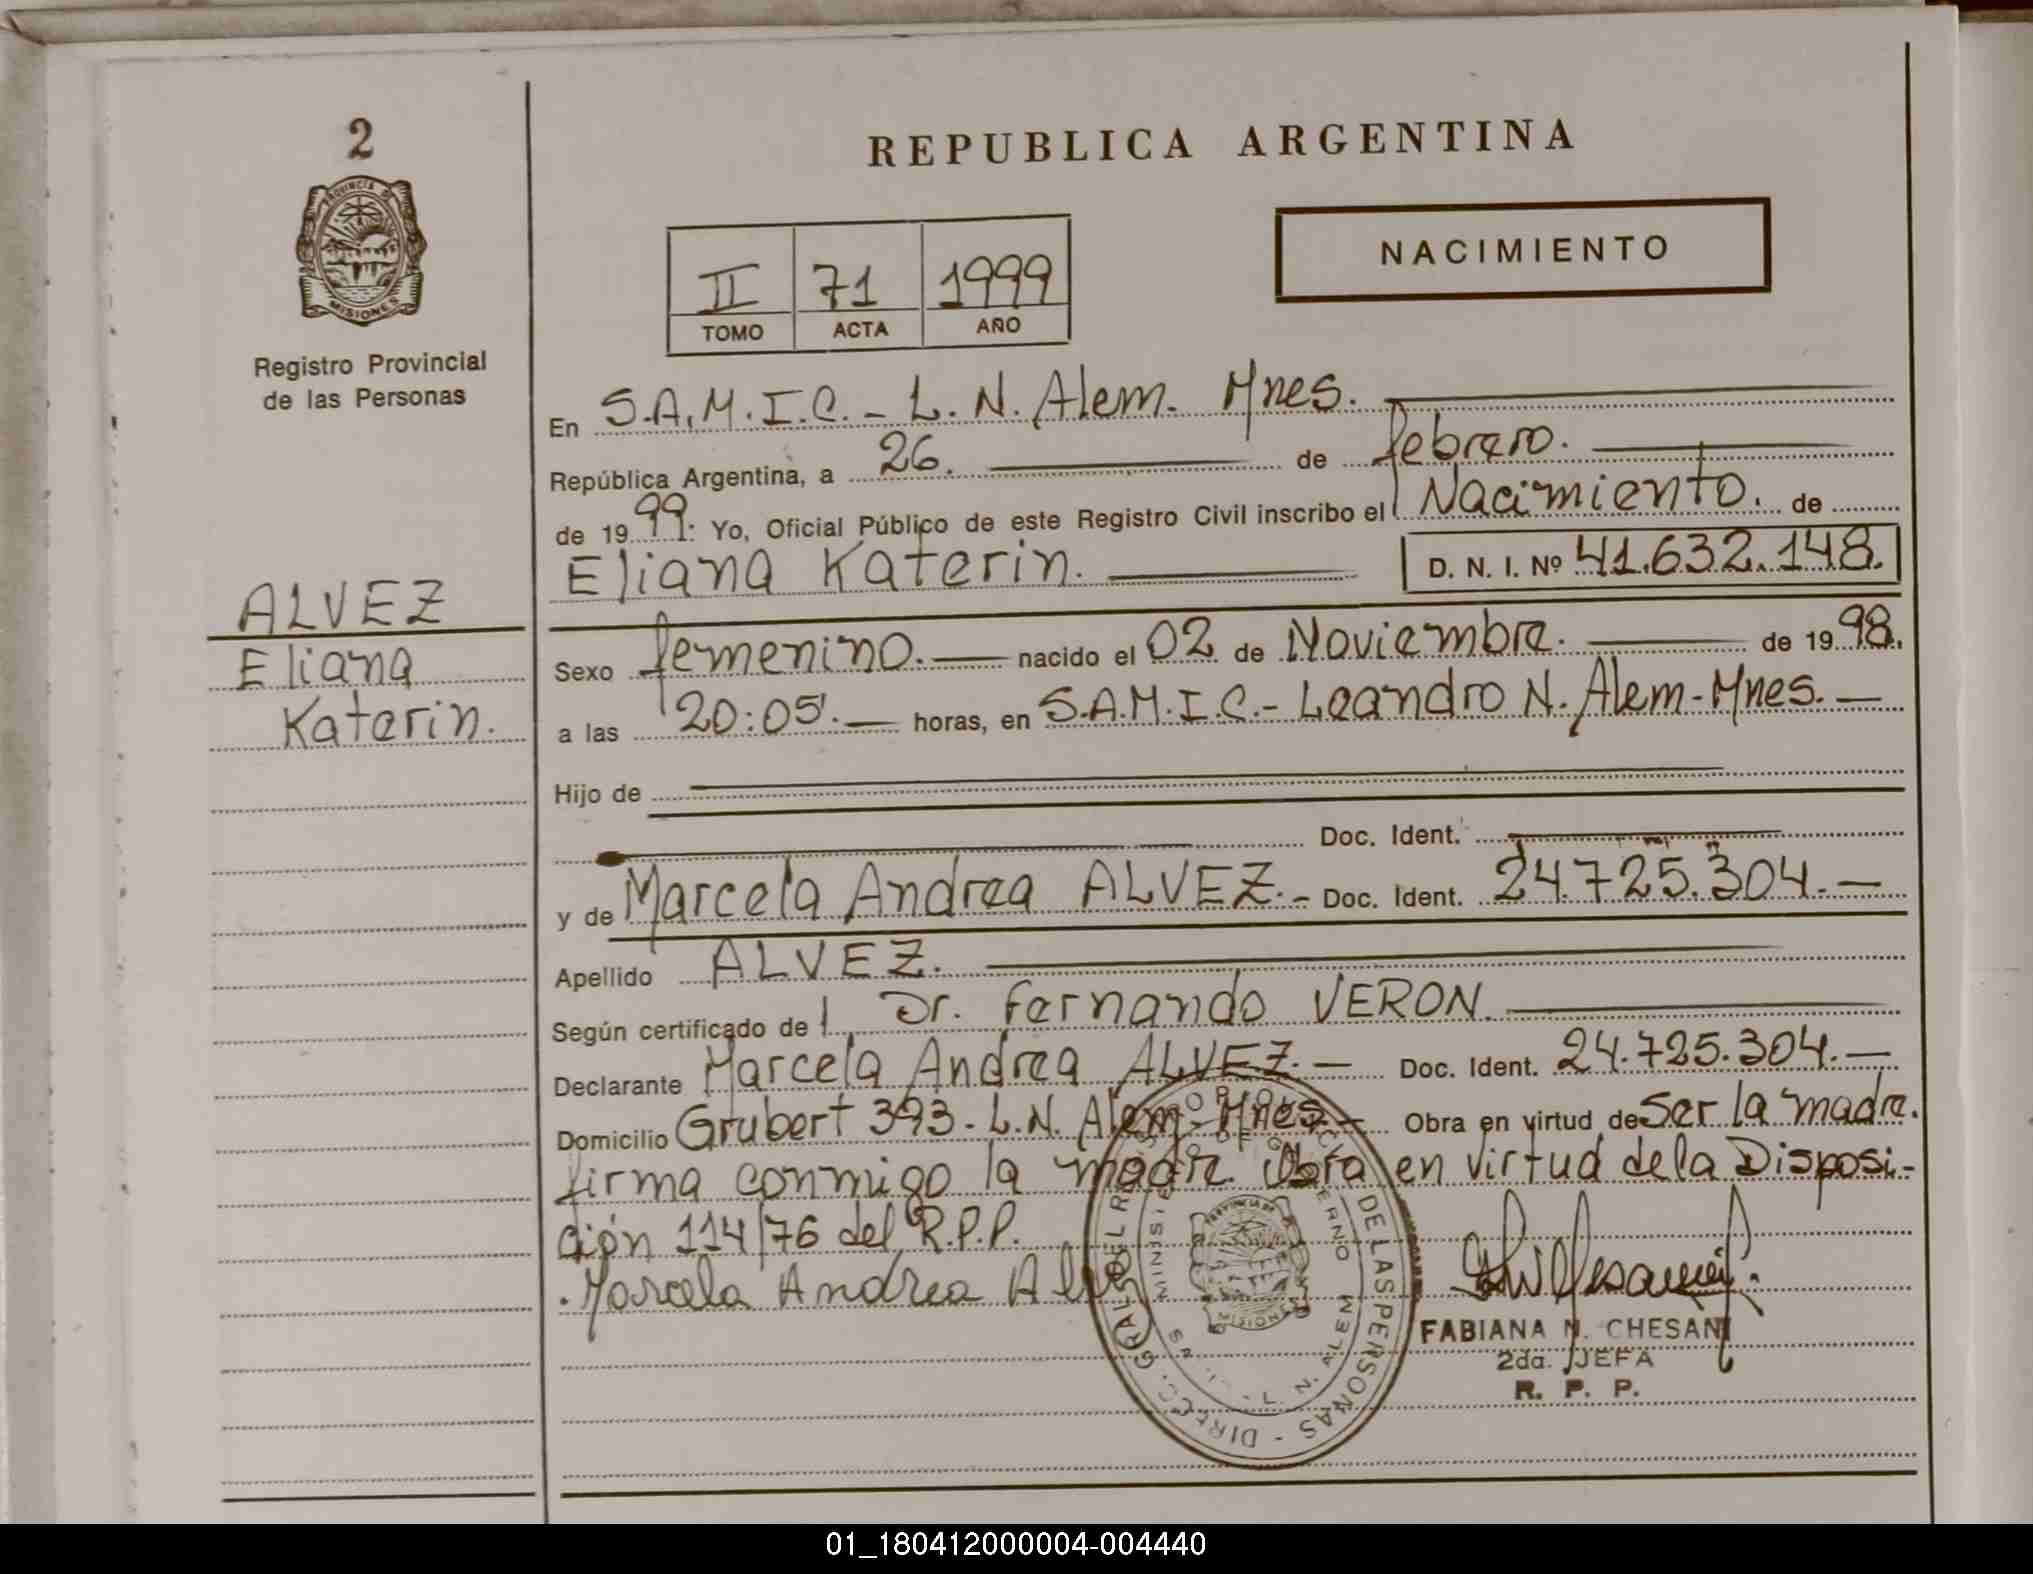 2
PROVINCIA DE
MISIONES
Registro Provincial
de las Personas
ALVEZ
Eliana
Katerin.
REPUBLICA ARGENTINA
II 71 1999
TOMO ACTA AÑO
NACIMIENTO
En S.A.M.I.C. - L. N. Alem. Mnes.
República Argentina, a 26. de febrero.
de 1999. Yo, Oficial Público de este Registro Civil inscribo el Nacimiento. de
Eliana Katerin. D. N. I. Nº 41.632.148.
Sexo femenino. nacido el 02 de Noviembre. de 1998.
a las 20:05'. horas, en S.A.M.I.C.- Leandro N. Alem-Mnes.-
Hijo de
Doc. Ident.
y de Marcela Andrea ALVEZ.- Doc. Ident. 24.725.304.-
Apellido ALVEZ.
Según certificado de l Dr. Fernando VERON.
Declarante Marcela Andrea ALVEZ.- Doc. Ident. 24.725.304.-
Domicilio Grubert 393. L.N. Alem- Mnes- Obra en virtud de ser la madre.
firma conmigo la madre. Obra en virtud de la Disposi-
ción 114/76 del R.P.P.
Marcela Andrea
DIREC. GRAL. DEL DE LAS PERSONAS
L. N. ALEM
MISIONES
FABIANA N. CHESANI
2da. JEFA
R. P. P.
01_180412000004-004440